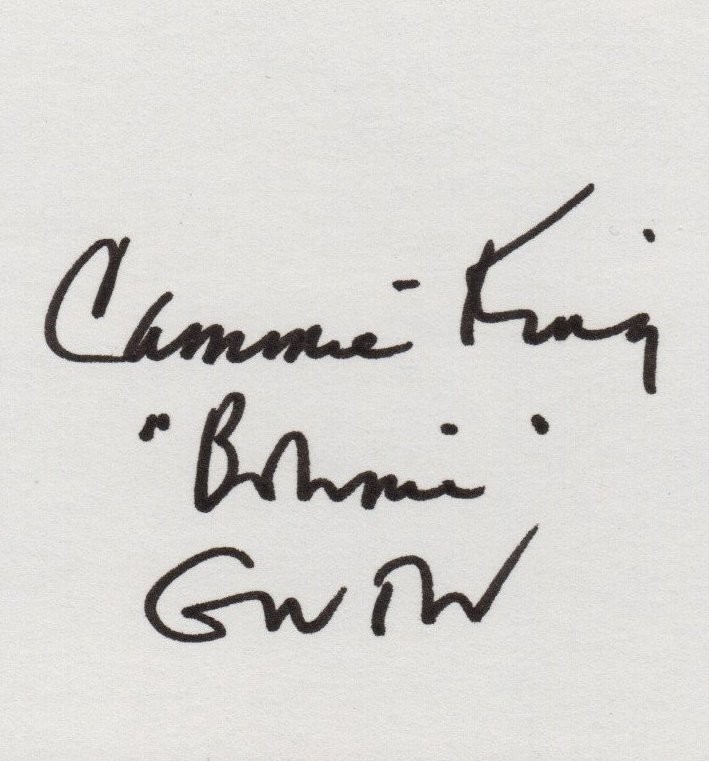 Cammie King
"Bonnie"
GWTW